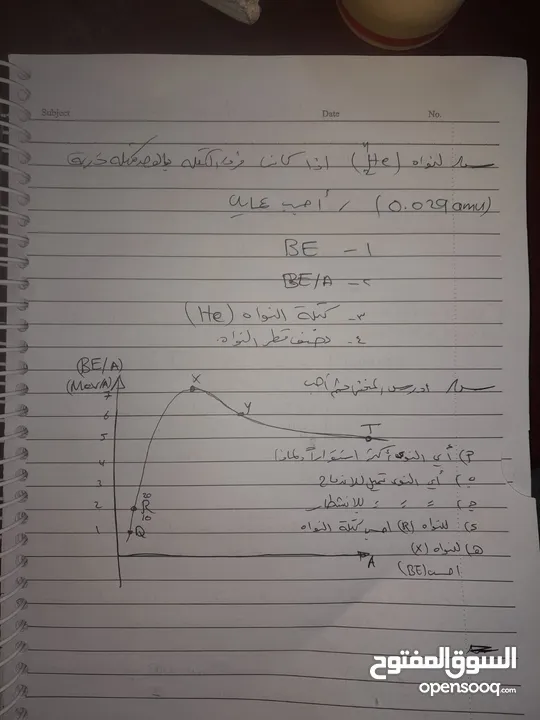 Subject Date No.
س١ لنواة (⁴₂He) اذا كانت فرق الكتلة بالوحدة كتلة ذرية
(0.029 amu) / أجب عما يلي
١ - BE
٢ - BE/A
٣ - كتلة النواه (He)
٤ - نصف قطر النواه
(BE/A)
(Mev/A)
س٢ ادرس المنحنى ثم أجب
7
6
5
4
3
2
1
X
Y
T
²⁰₁₀R
Q
A
أ) أي النوى أكثر استقراراً ولماذا
ب) أي النوى تميل للاندماج
ج) 〃 〃 〃 للإنشطار
د) للنواه (R) احسب كتلة النواه
هـ) للنواه (X)
احسب (BE)
السوق المفتوح
opensooq.com